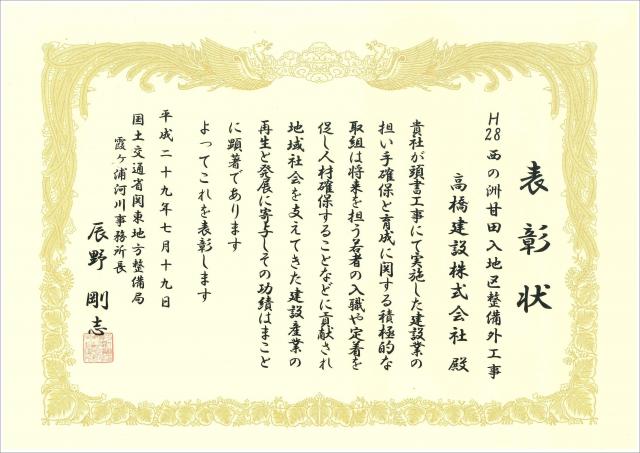 表彰状
H28西の洲甘田入地区整備外工事
高橋建設株式会社 殿
貴社が頭書工事にて実施した建設業の
担い手確保と育成に関する積極的な
取組は将来を担う若者の入職や定着を
促し人材確保することなどに貢献され
地域社会を支えてきた建設産業の
再生と発展に寄与しその功績はまこと
に顕著であります
よってこれを表彰します
平成二十九年七月十九日
国土交通省関東地方整備局
霞ヶ浦河川事務所長
辰野剛志